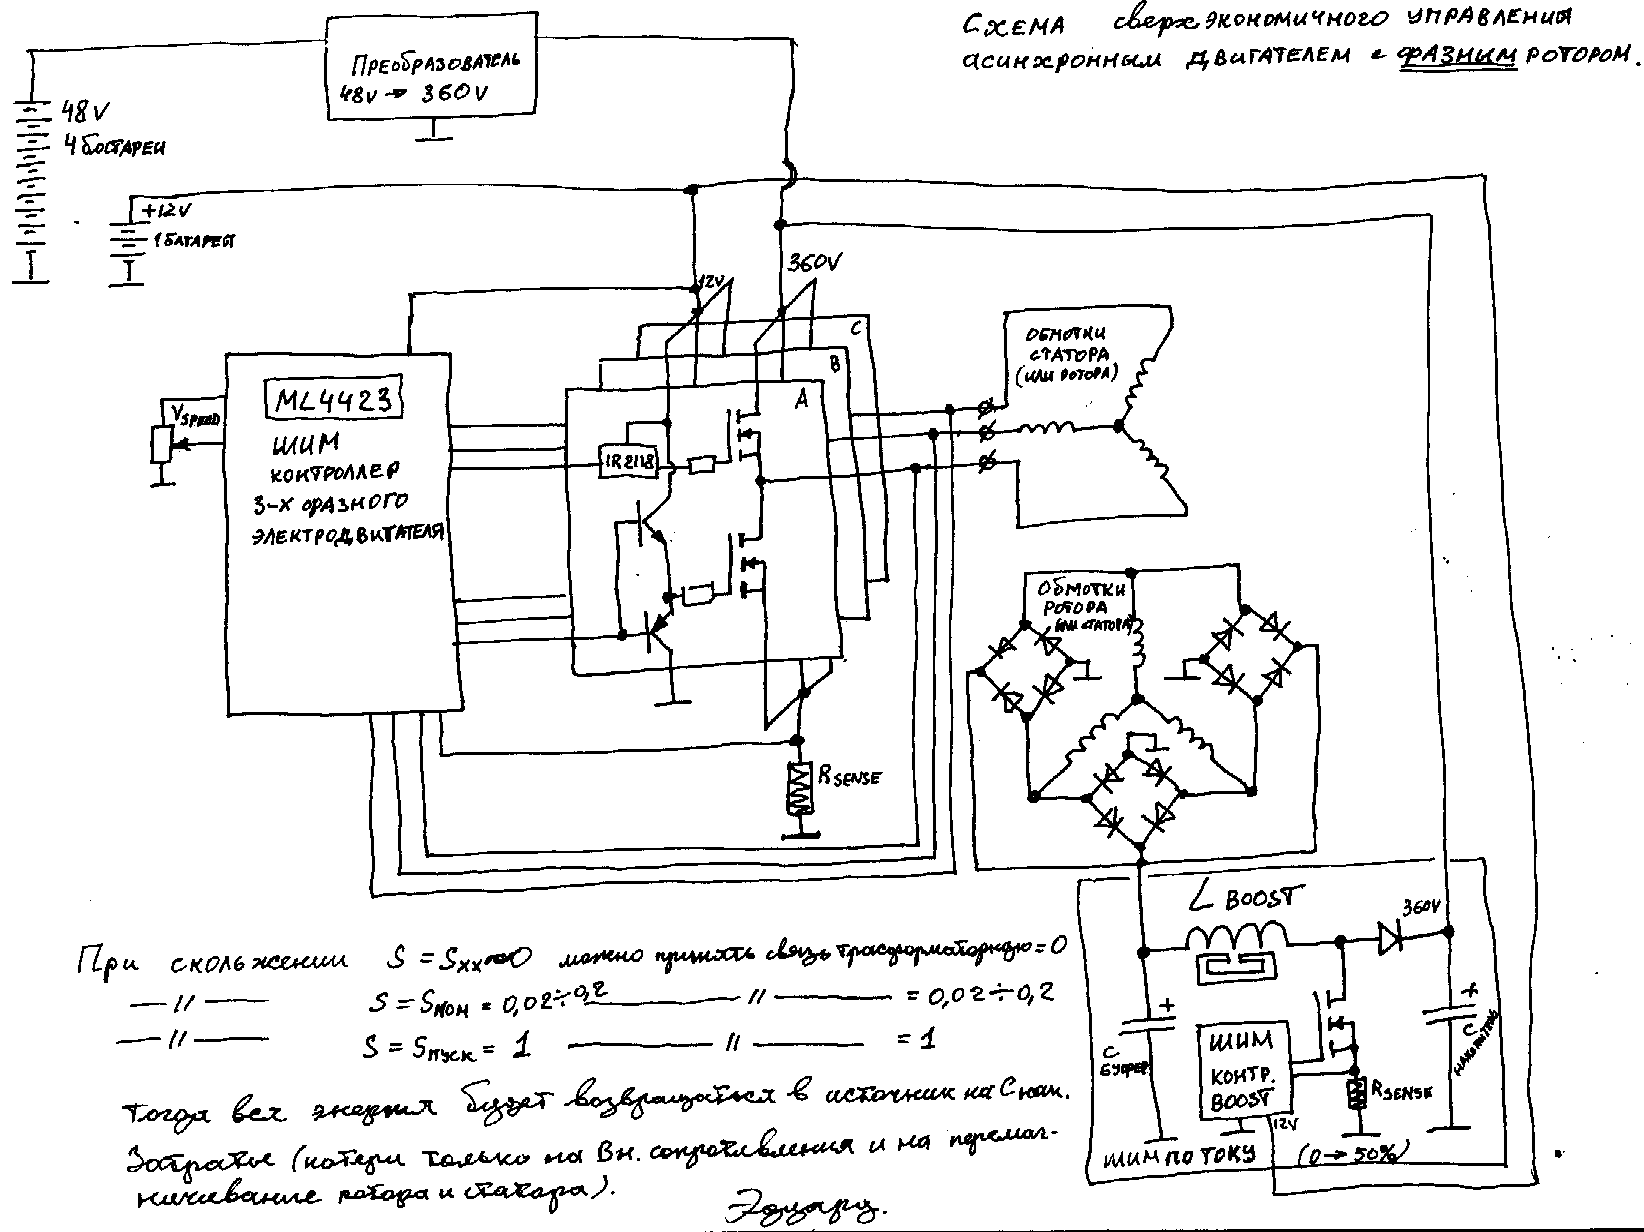 СХЕМА сверхэкономичного управления
асинхронным двигателем с фазним ротором.
Преобразователь
48V → 360V
48V
4 батареи
+12V
1 батарея
12V
360V
C
B
A
ML4423
ШИМ
контроллер
3-х фазного
электродвигателя
VSPEED
IR2118
обмотки
статора
(или ротора)
Обмотки
ротора
(или статора)
RSENSE
L BOOST
360V
+
C
буфер
+
C
накопитель
ШИМ
контр.
BOOST
12V
RSENSE
ШИМ по току (0→50%)
При скольжении S = Sхх≈0 можно принять связь трасформаторную = 0
—〃— S = Sном = 0,02÷0,2 —〃— = 0,02÷0,2
—〃— S = Sпуск = 1 —〃— = 1
Тогда вся энергия будет возвращаться в источник на Снак.
Затраты (потери только на Вн. сопротивления и на перемаг-
ничивание ротора и статора).
Эдуард.